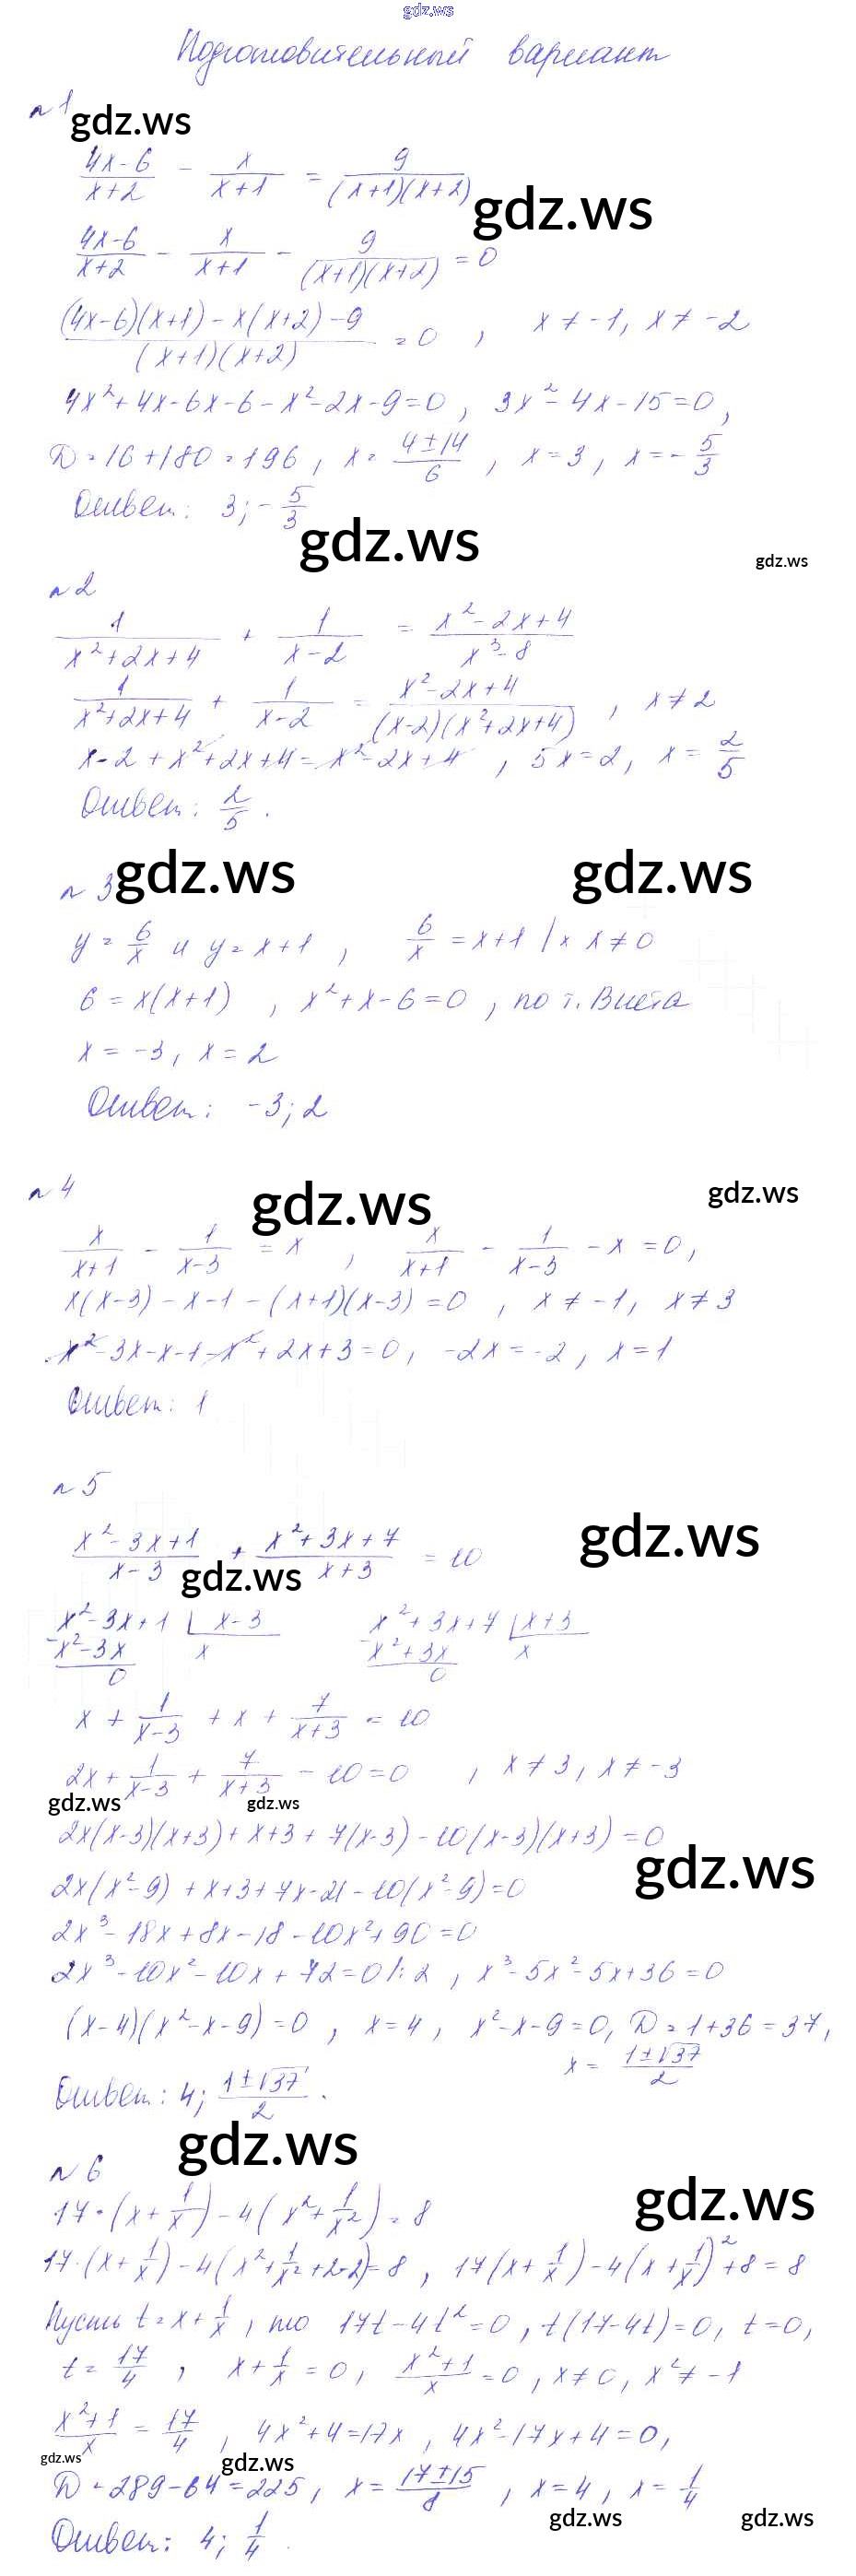 gdz.ws
Подготовительный вариант
n 1
gdz.ws
(4x-6)/(x+2) - x/(x+1) = 9/((x+1)(x+2))
gdz.ws
(4x-6)/(x+2) - x/(x+1) - 9/((x+1)(x+2)) = 0
((4x-6)(x+1) - x(x+2) - 9)/((x+1)(x+2)) = 0 , x ≠ -1, x ≠ -2
4x² + 4x - 6x - 6 - x² - 2x - 9 = 0 , 3x² - 4x - 15 = 0 ,
D = 16 + 180 = 196 , x = (4 ± 14)/6 , x = 3 , x = - 5/3
Ответ: 3; - 5/3
gdz.ws
gdz.ws
n 2
1/(x²+2x+4) + 1/(x-2) = (x²-2x+4)/(x³-8)
1/(x²+2x+4) + 1/(x-2) = (x²-2x+4)/((x-2)(x²+2x+4)) , x ≠ 2
x - 2 + x² + 2x + 4 = x² - 2x + 4 , 5x = 2, x = 2/5
Ответ: 2/5 .
n 3
gdz.ws
gdz.ws
y = 6/x и y = x+1 , 6/x = x+1 | × x ≠ 0
6 = x(x+1) , x² + x - 6 = 0 , по т. Виета
x = -3, x = 2
Ответ: -3; 2
n 4
gdz.ws
gdz.ws
x/(x+1) - 1/(x-3) = x , x/(x+1) - 1/(x-3) - x = 0 ,
x(x-3) - x - 1 - (x+1)(x-3) = 0 , x ≠ -1, x ≠ 3
x² - 3x - x - 1 - x² + 2x + 3 = 0 , -2x = -2 , x = 1
Ответ: 1
n 5
gdz.ws
(x²-3x+1)/(x-3) + (x²+3x+7)/(x+3) = 10
gdz.ws
x²-3x+1 | x-3 x²+3x+7 | x+3
- x²-3x x - x²+3x x
0 0
x + 1/(x-3) + x + 7/(x+3) = 10
2x + 1/(x-3) + 7/(x+3) - 10 = 0 , x ≠ 3, x ≠ -3
gdz.ws
gdz.ws
2x(x-3)(x+3) + x+3 + 7(x-3) - 10(x-3)(x+3) = 0
gdz.ws
2x(x²-9) + x+3+7x-21-10(x²-9)=0
2x³ - 18x + 8x - 18 - 10x² + 90 = 0
2x³ - 10x² - 10x + 72 = 0 | : 2 , x³ - 5x² - 5x + 36 = 0
(x-4)(x²-x-9) = 0 , x = 4 , x²-x-9=0, D = 1+36 = 37,
x = (1±√37)/2
Ответ: 4; (1±√37)/2 .
gdz.ws
n 6
gdz.ws
17·(x + 1/x) - 4(x² + 1/x²) = 8
17·(x + 1/x) - 4(x² + 1/x² + 2-2) = 8 , 17(x + 1/x) - 4(x + 1/x)² + 8 = 8
Пусть t = x + 1/x , то 17t - 4t² = 0 , t(17-4t) = 0, t = 0,
t = 17/4 , x + 1/x = 0 , (x²+1)/x = 0 , x ≠ 0, x² ≠ -1
(x²+1)/x = 17/4 , 4x² + 4 = 17x , 4x² - 17x + 4 = 0 ,
gdz.ws
gdz.ws
D = 289 - 64 = 225 , x = (17±15)/8 , x = 4, x = 1/4
gdz.ws
gdz.ws
Ответ: 4; 1/4 .